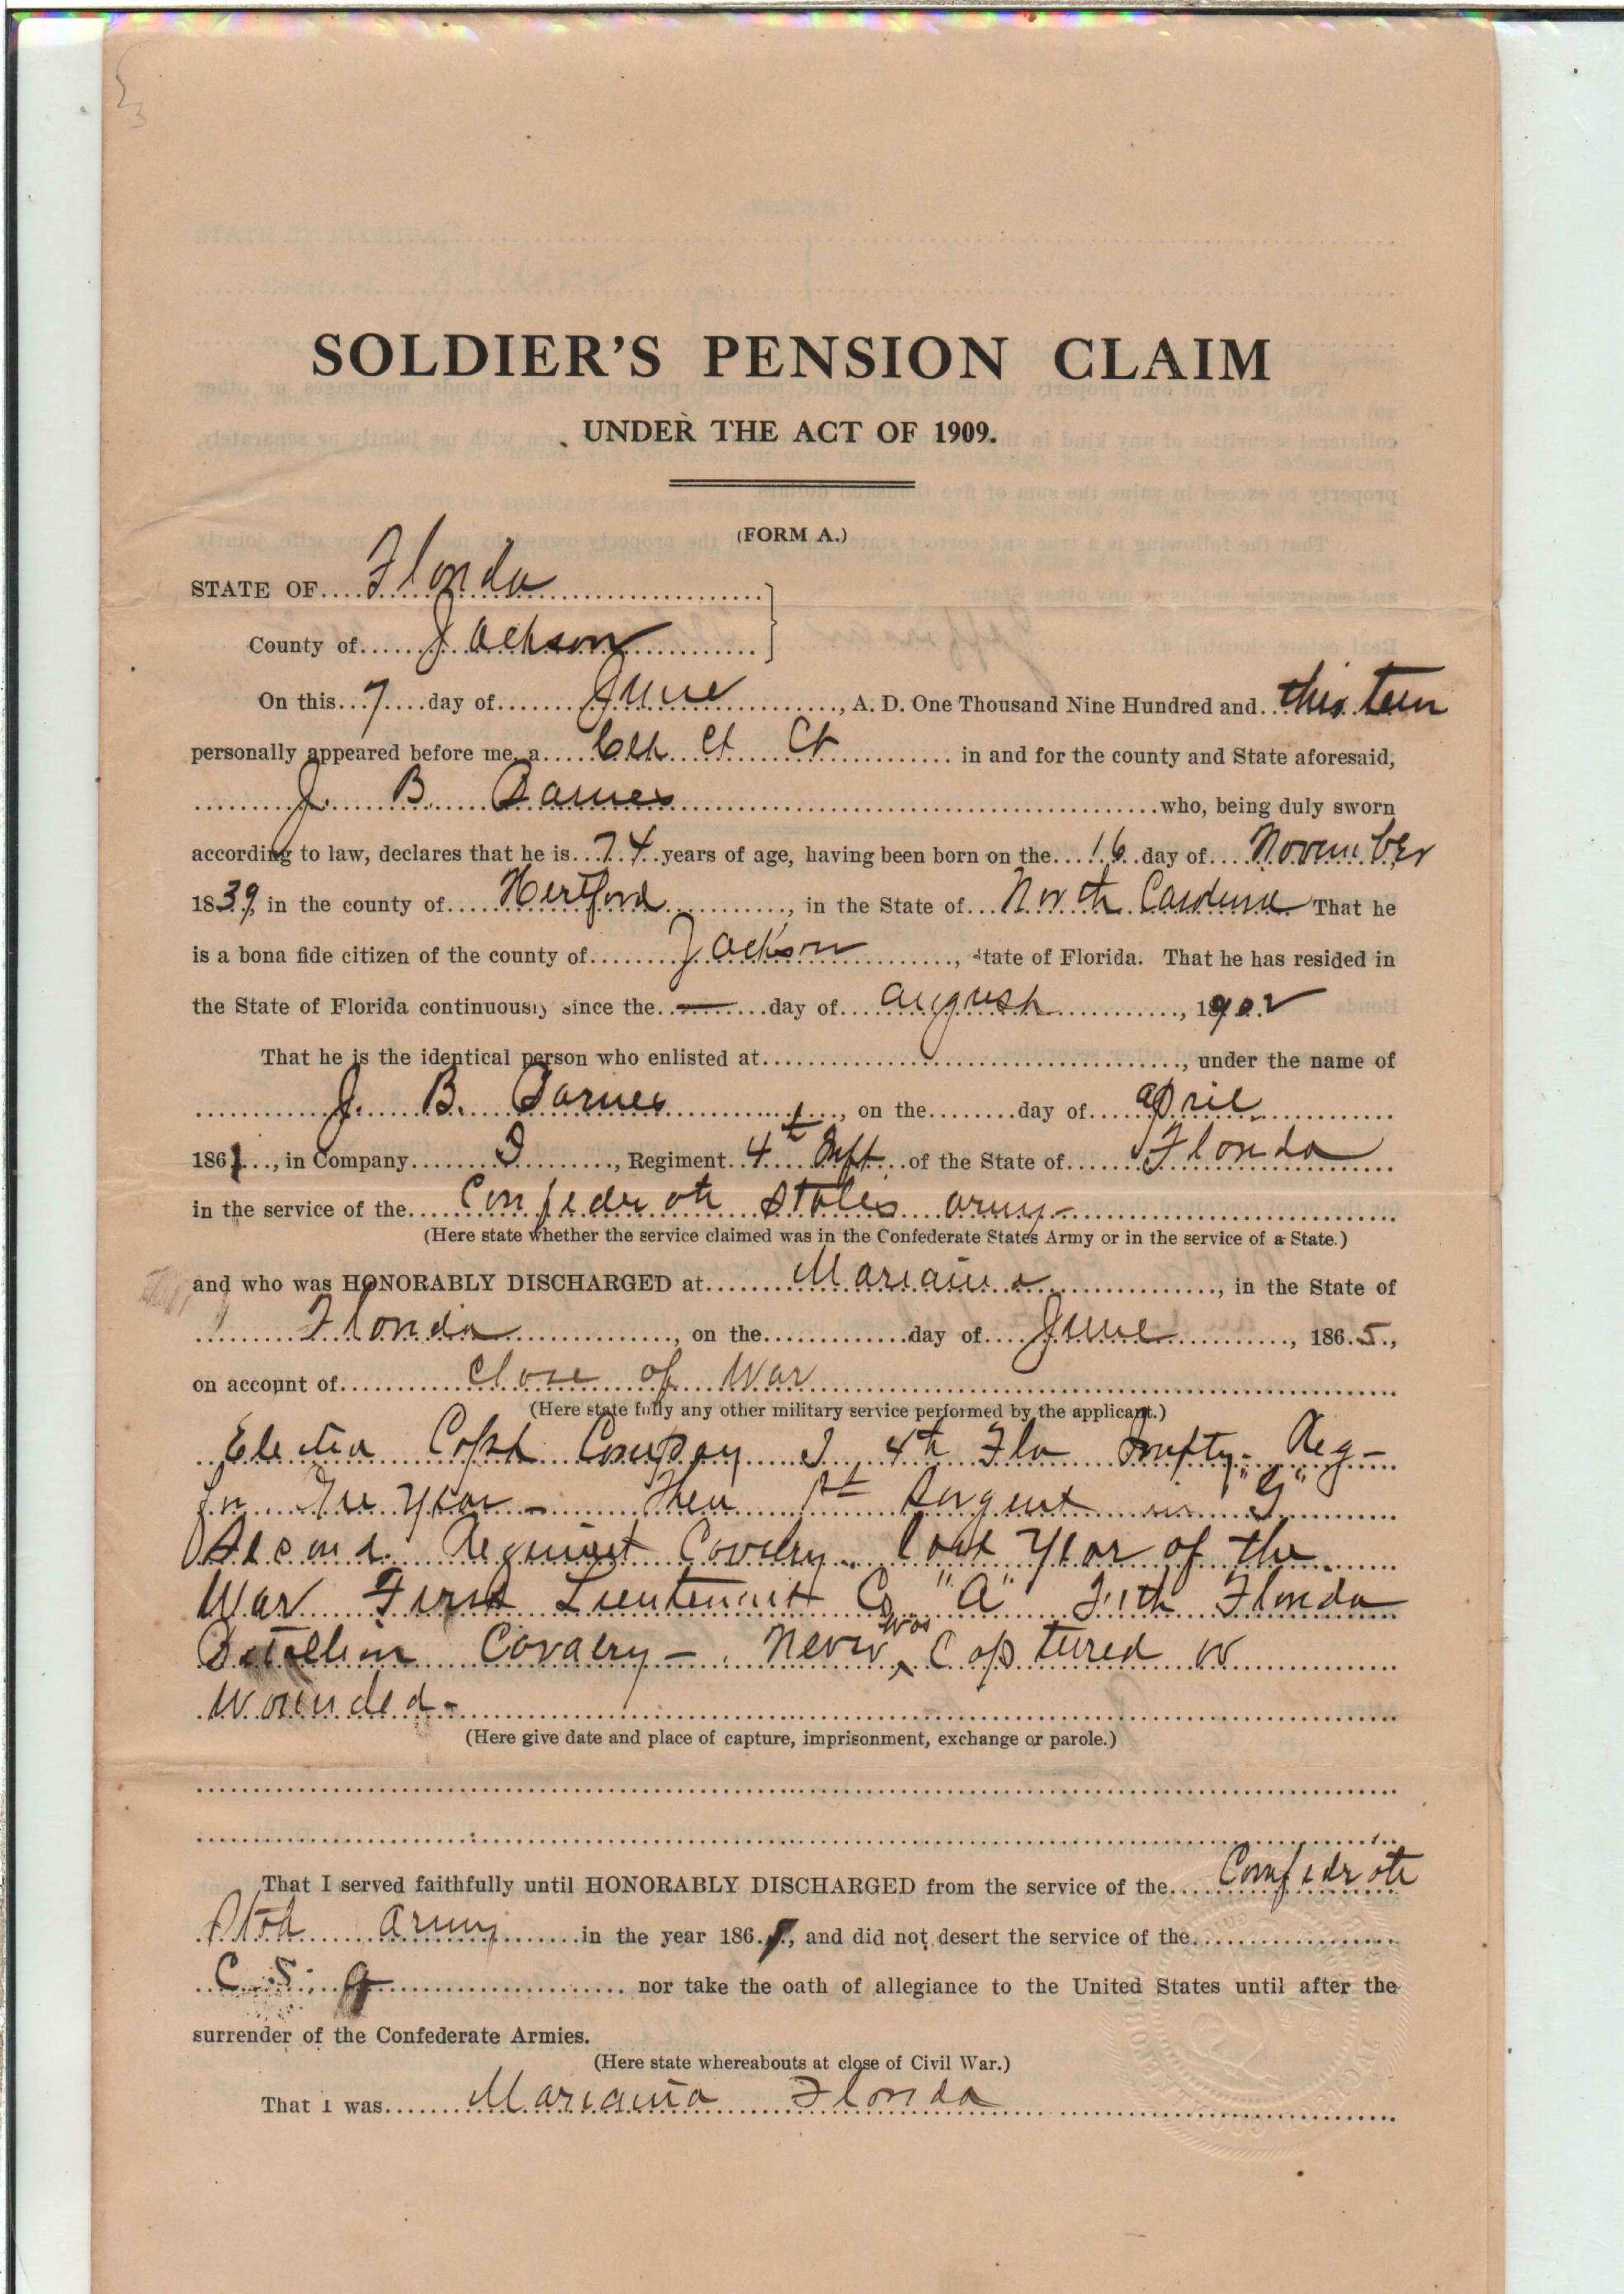 SOLDIER'S PENSION CLAIM
UNDER THE ACT OF 1909.
(FORM A.)
STATE OF Florida
County of Jackson
On this 7 day of June, A. D. One Thousand Nine Hundred and thirteen
personally appeared before me, a Clk Ct Ct in and for the county and State aforesaid,
J. B. Barnes who, being duly sworn
according to law, declares that he is 74 years of age, having been born on the 16 day of November
1839, in the county of Hertford, in the State of North Carolina That he
is a bona fide citizen of the county of Jackson, State of Florida. That he has resided in
the State of Florida continuously since the — day of August, 1902
That he is the identical person who enlisted at, under the name of
J. B. Barnes, on the day of April
1861, in Company I, Regiment 4th Inft. of the State of Florida
in the service of the Confederate States Army -
(Here state whether the service claimed was in the Confederate States Army or in the service of a State.)
and who was HONORABLY DISCHARGED at Marianna, in the State of
Florida, on the day of June, 1865,
on account of Close of War
(Here state fully any other military service performed by the applicant.)
Elected Capt Company I 4th Fla Infty - Reg -
for one year - Then 1st Sargent in "G"
Second Regiment Cavalry - last year of the
War First Lieutenant Co "A" Fifth Florida
Batallion Cavalry - Never was Captured or
Wounded -
(Here give date and place of capture, imprisonment, exchange or parole.)
That I served faithfully until HONORABLY DISCHARGED from the service of the Confedrate
Army in the year 186, and did not desert the service of the
C. S. A nor take the oath of allegiance to the United States until after the
surrender of the Confederate Armies.
(Here state whereabouts at close of Civil War.)
That I was Marianna Florida